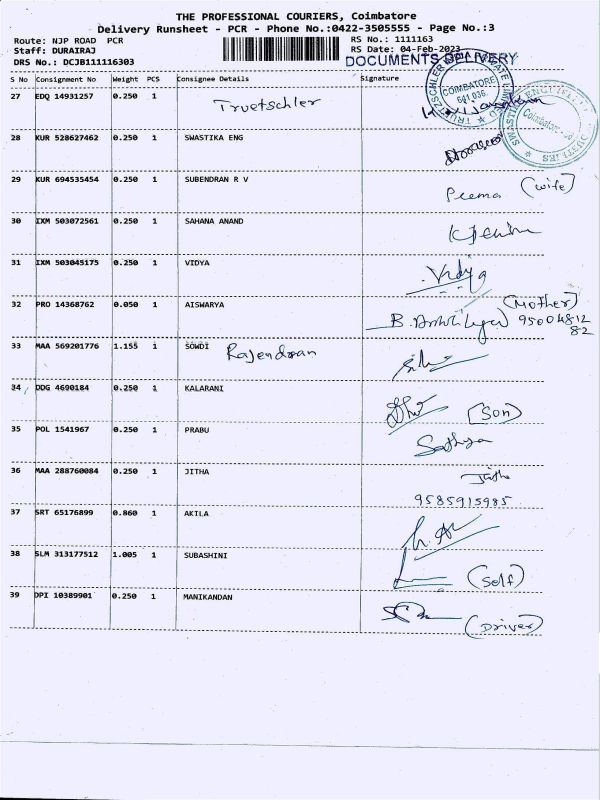 THE PROFESSIONAL COURIERS, Coimbatore
Delivery Runsheet - PCR - Phone No.:0422-3505555 - Page No.:3
Route: NJP ROAD PCR
RS No.: 1111163
Staff: DURAIRAJ
RS Date: 04-Feb-2023
DRS No.: DCJB111116303
DOCUMENTS DELIVERY
S No Consignment No Weight PCS Consignee Details Signature
27 EDQ 14931257 0.250 1 Truetschler
COIMBATORE 641 036.
28 KUR 528627462 0.250 1 SWASTIKA ENG
29 KUR 694535454 0.250 1 SUBENDRAN R V Prema (wife)
30 IXM 503072561 0.250 1 SAHANA ANAND
31 IXM 503045175 0.250 1 VIDYA Vidya
32 PRO 14368762 0.050 1 AISWARYA (Mother)
95004812
82
33 MAA 569201776 1.155 1 SOWDI Rajendran
34 DDG 4690184 0.250 1 KALARANI (Son)
35 POL 1541967 0.250 1 PRABU Sathya
36 MAA 288760084 0.250 1 JITHA Jitha
9585915985
37 SRT 65176899 0.860 1 AKILA
38 SLM 313177512 1.005 1 SUBASHINI (Self)
39 DPI 10389901 0.250 1 MANIKANDAN (Driver)